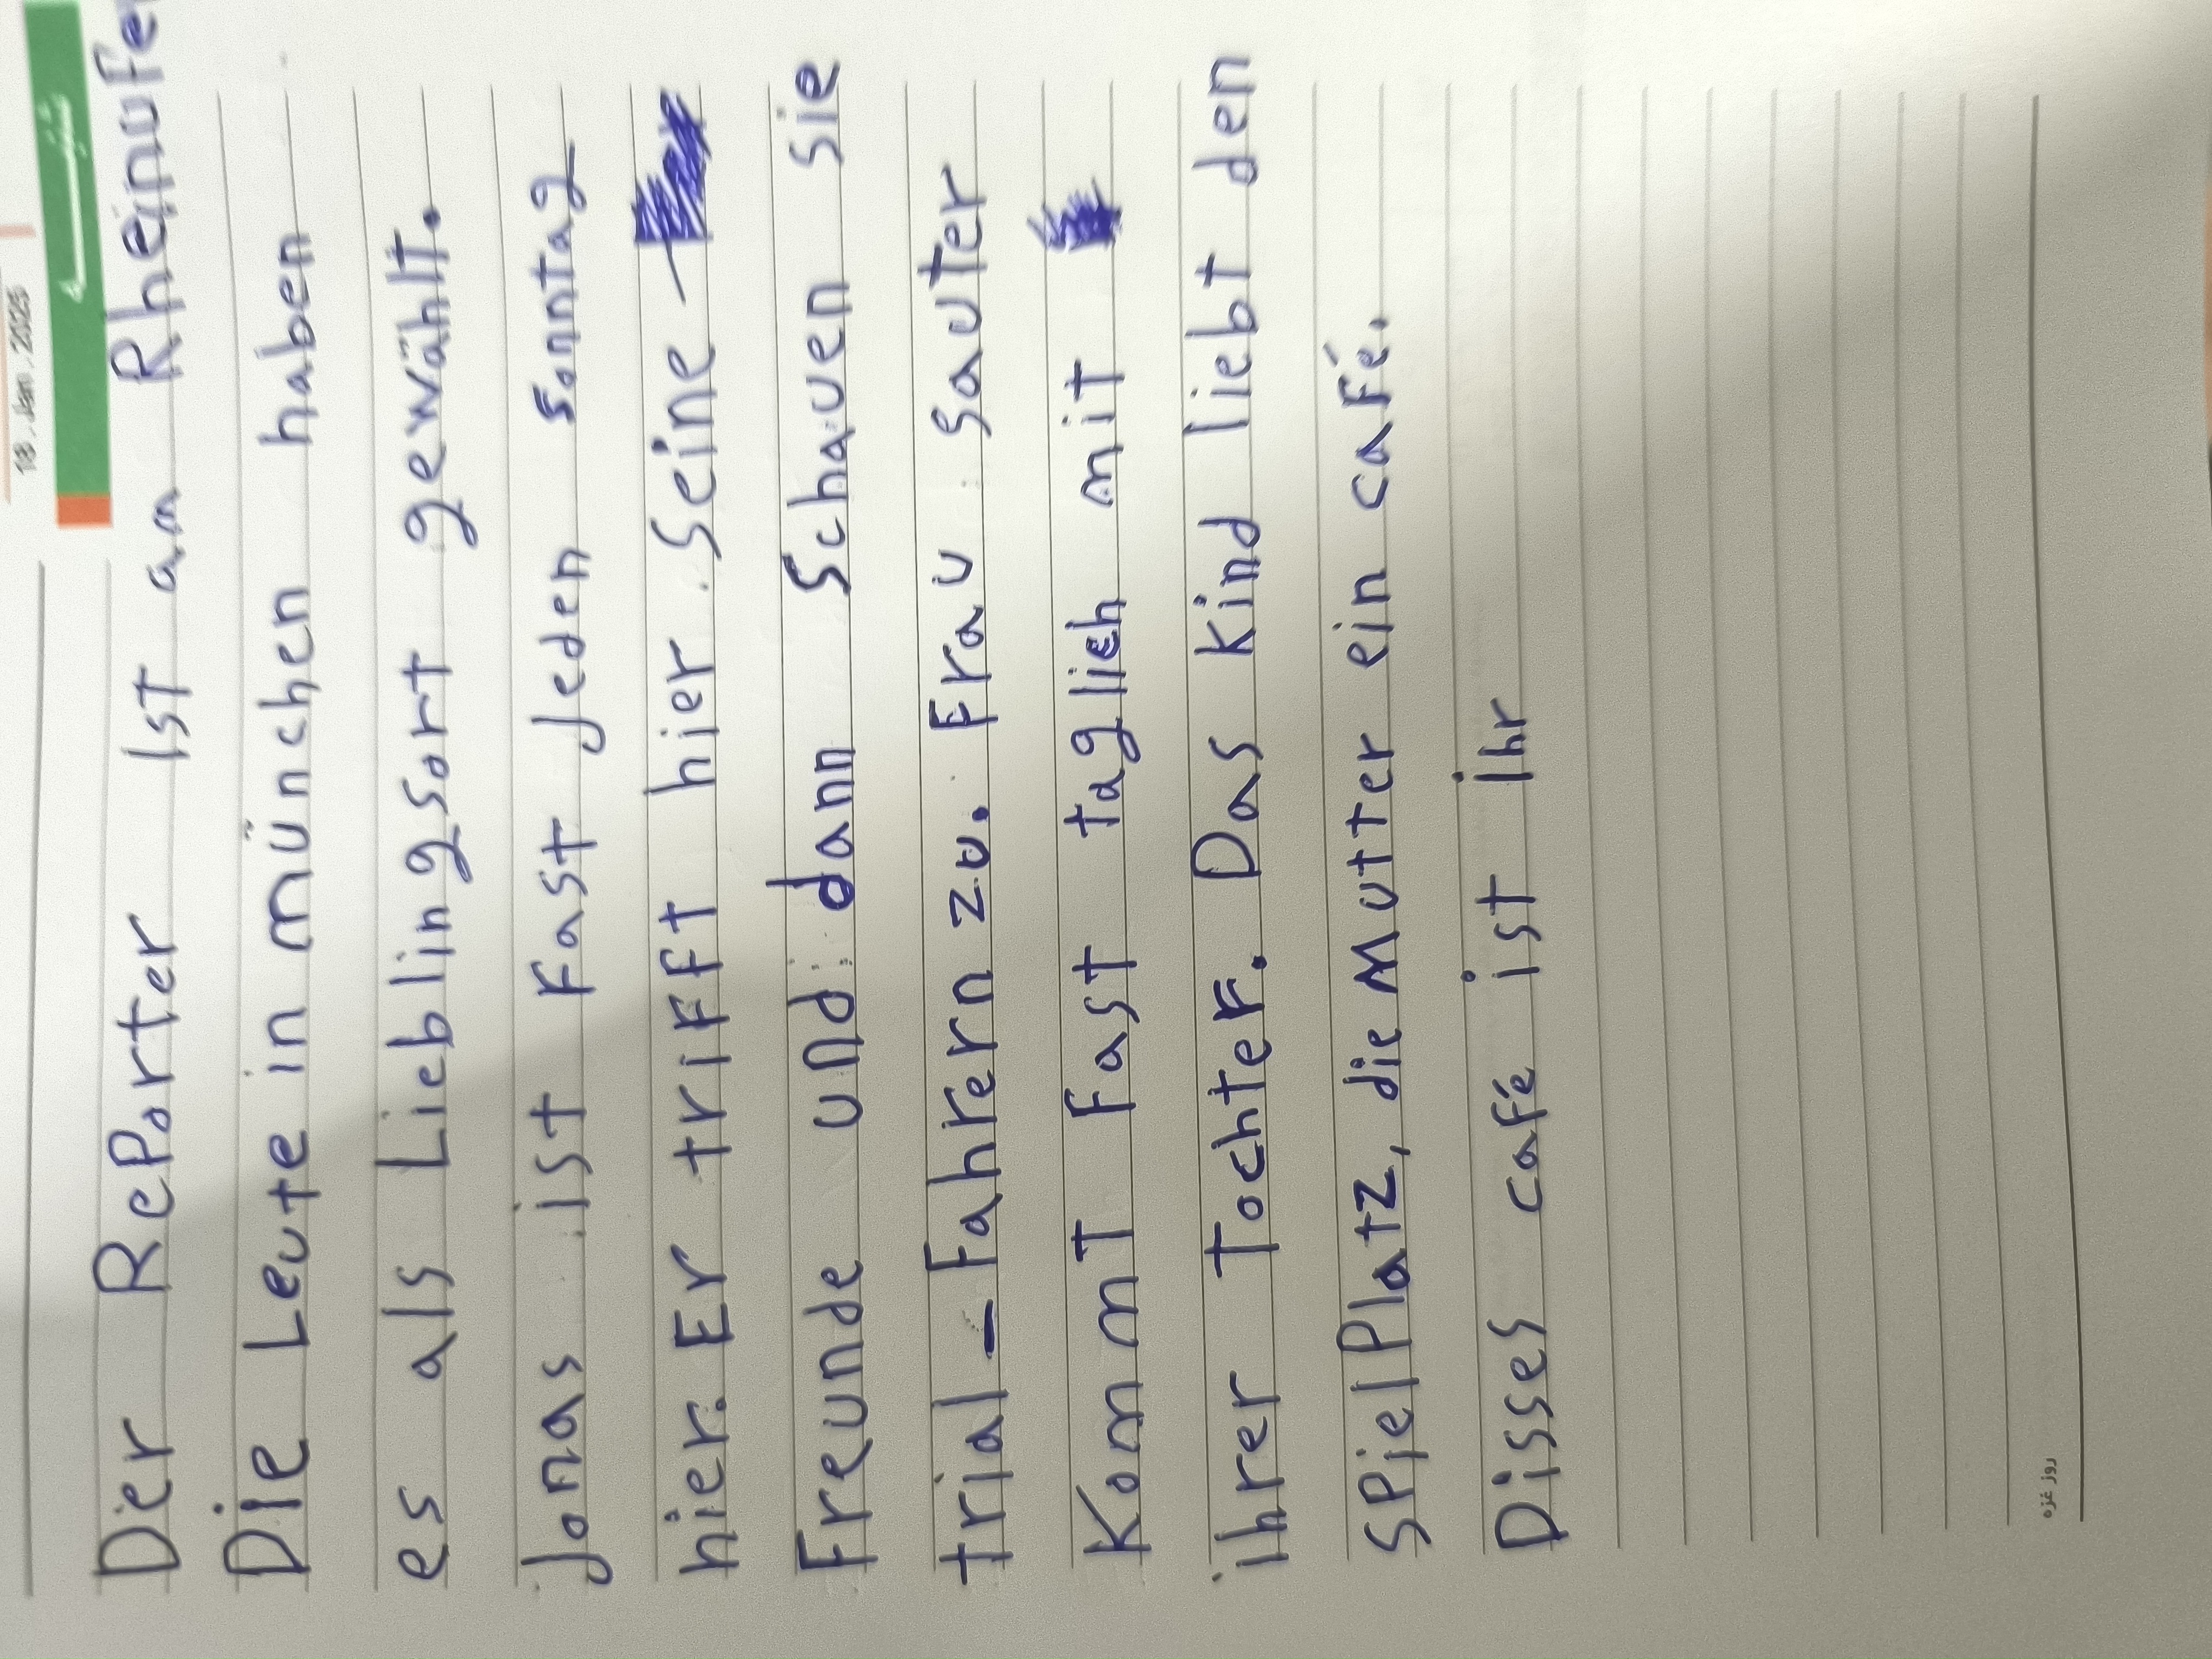 18 . Jan . 2025
Der RePorter Ist am Rheinufer
Die Leute in münchen haben
es als Lieblingsort gewählt.
Jonas ist Fast Jeden Sonntag
hier. Er triFFt hier Seine
Freunde und dann Schauen Sie
trial_Fahrern zu. Frau Sauter
KommT Fast taglich mit
ihrer Tochter. Das Kind liebt den
SPielPlatz, die Mutter ein caFé.
Disses caFé ist ihr
روز غزه